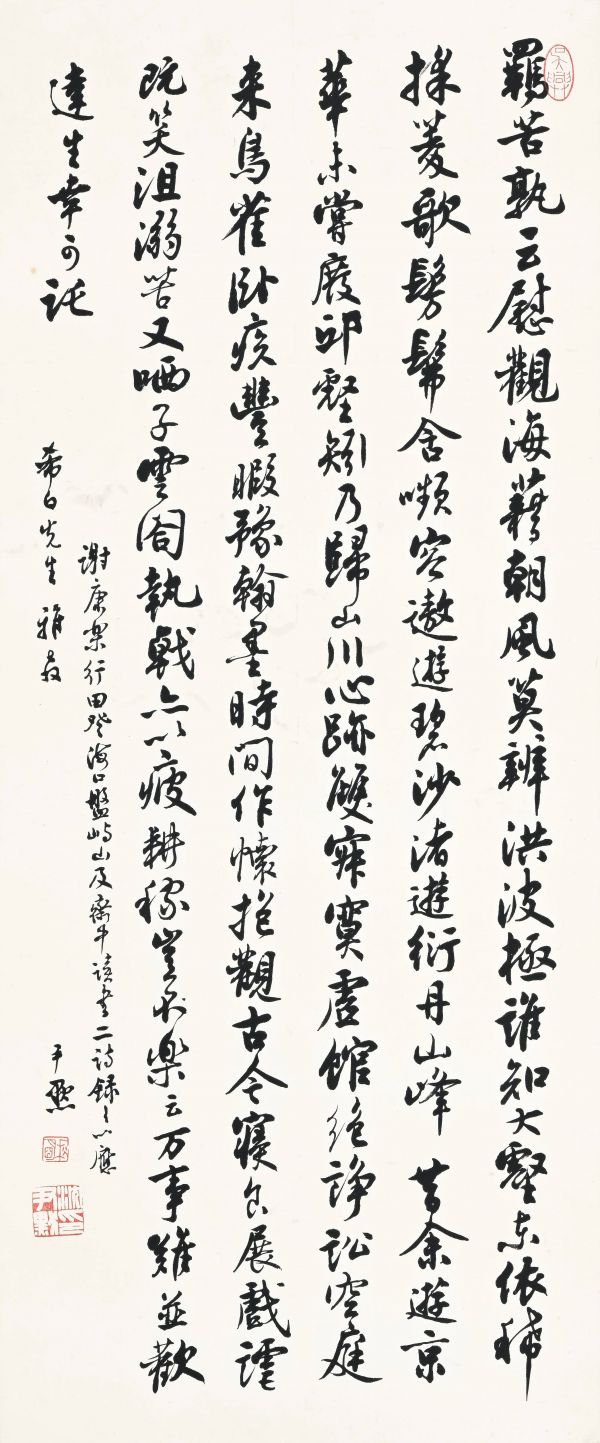 羈苦孰云慰觀海藉朝風莫辨洪波極誰知大壑東依稀
採菱歌髣髴含嚬容遨遊碧沙渚遊衍丹山峰 昔余遊京
華未嘗廢邱壑矧乃歸山川心跡雙寂寞虛館絕諍訟空庭
來鳥雀臥疾豐暇豫翰墨時間作懷抱觀古今寢食展戲謔
既笑沮溺苦又哂子雲閣執戟亦以疲耕稼豈不樂云万事難並歡
達生幸可託
謝康樂行田登海口盤嶼山及齋中讀書二詩錄之以應
希白先生雅教
尹默